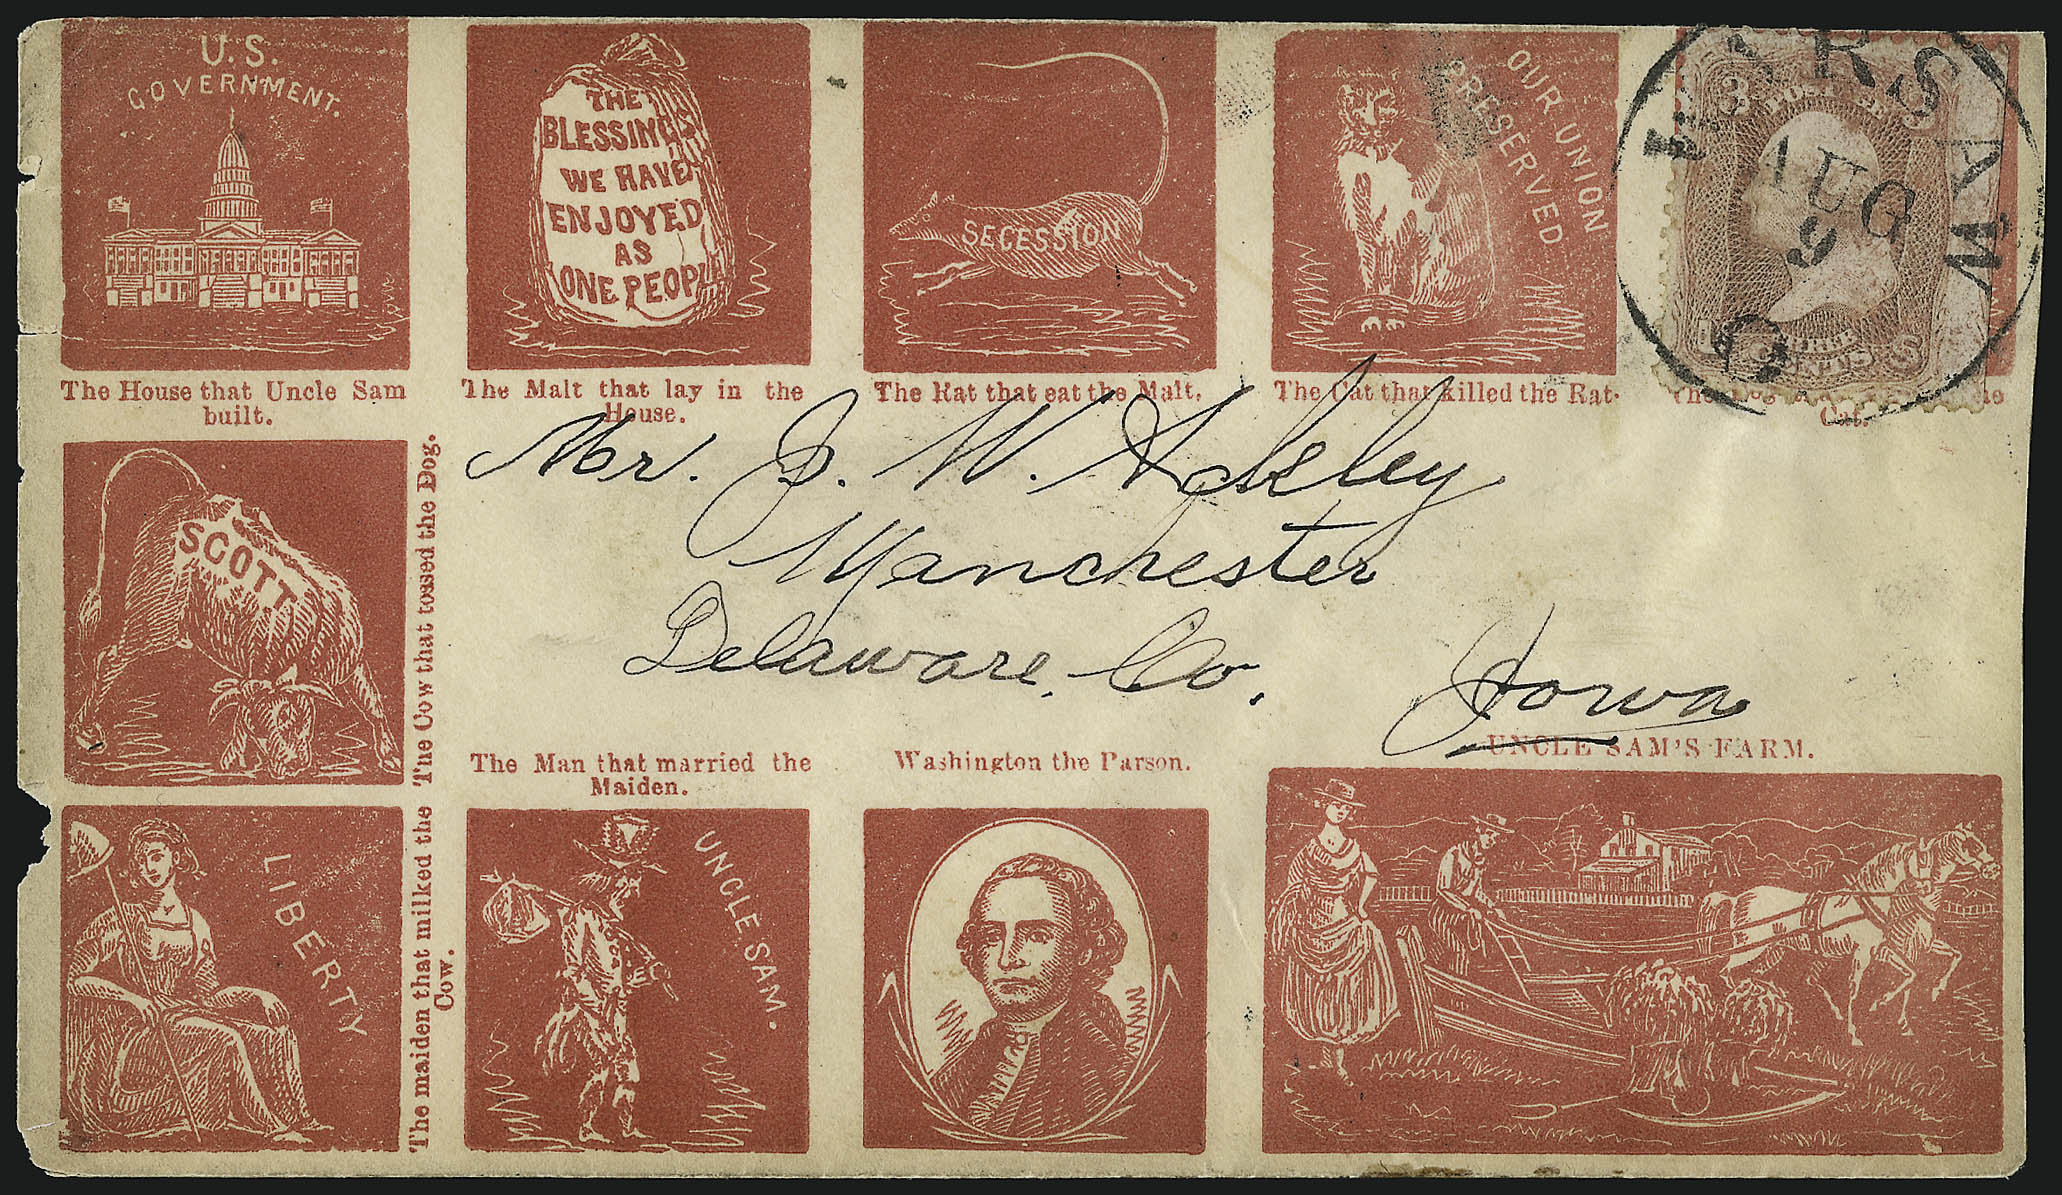 U.S.
GOVERNMENT.
The House that Uncle Sam
built.
THE
BLESSINGS
WE HAVE
ENJOYED
AS
ONE PEOPL
The Malt that lay in the
House.
SECESSION
The Rat that eat the Malt.
OUR UNION
PRESERVED
The Cat that killed the Rat.
WARSAW
AUG
9
O
3 3
POSTAGE
THREE
CENTS
The Dog
Cat.
SCOTT
The Cow that tossed the Dog.
Mr. J. W. Ackley
Manchester
Delaware. Co.
Iowa
LIBERTY
The maiden that milked the
Cow.
The Man that married the
Maiden.
UNCLE SAM.
Washington the Parson.
UNCLE SAM'S FARM.